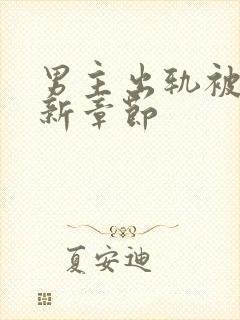 男主出轨被
新章节
夏安迪